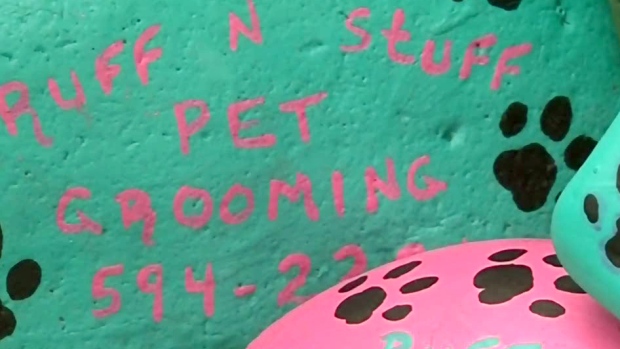 RUFF N StUFF
PET
GROOMING
594-22